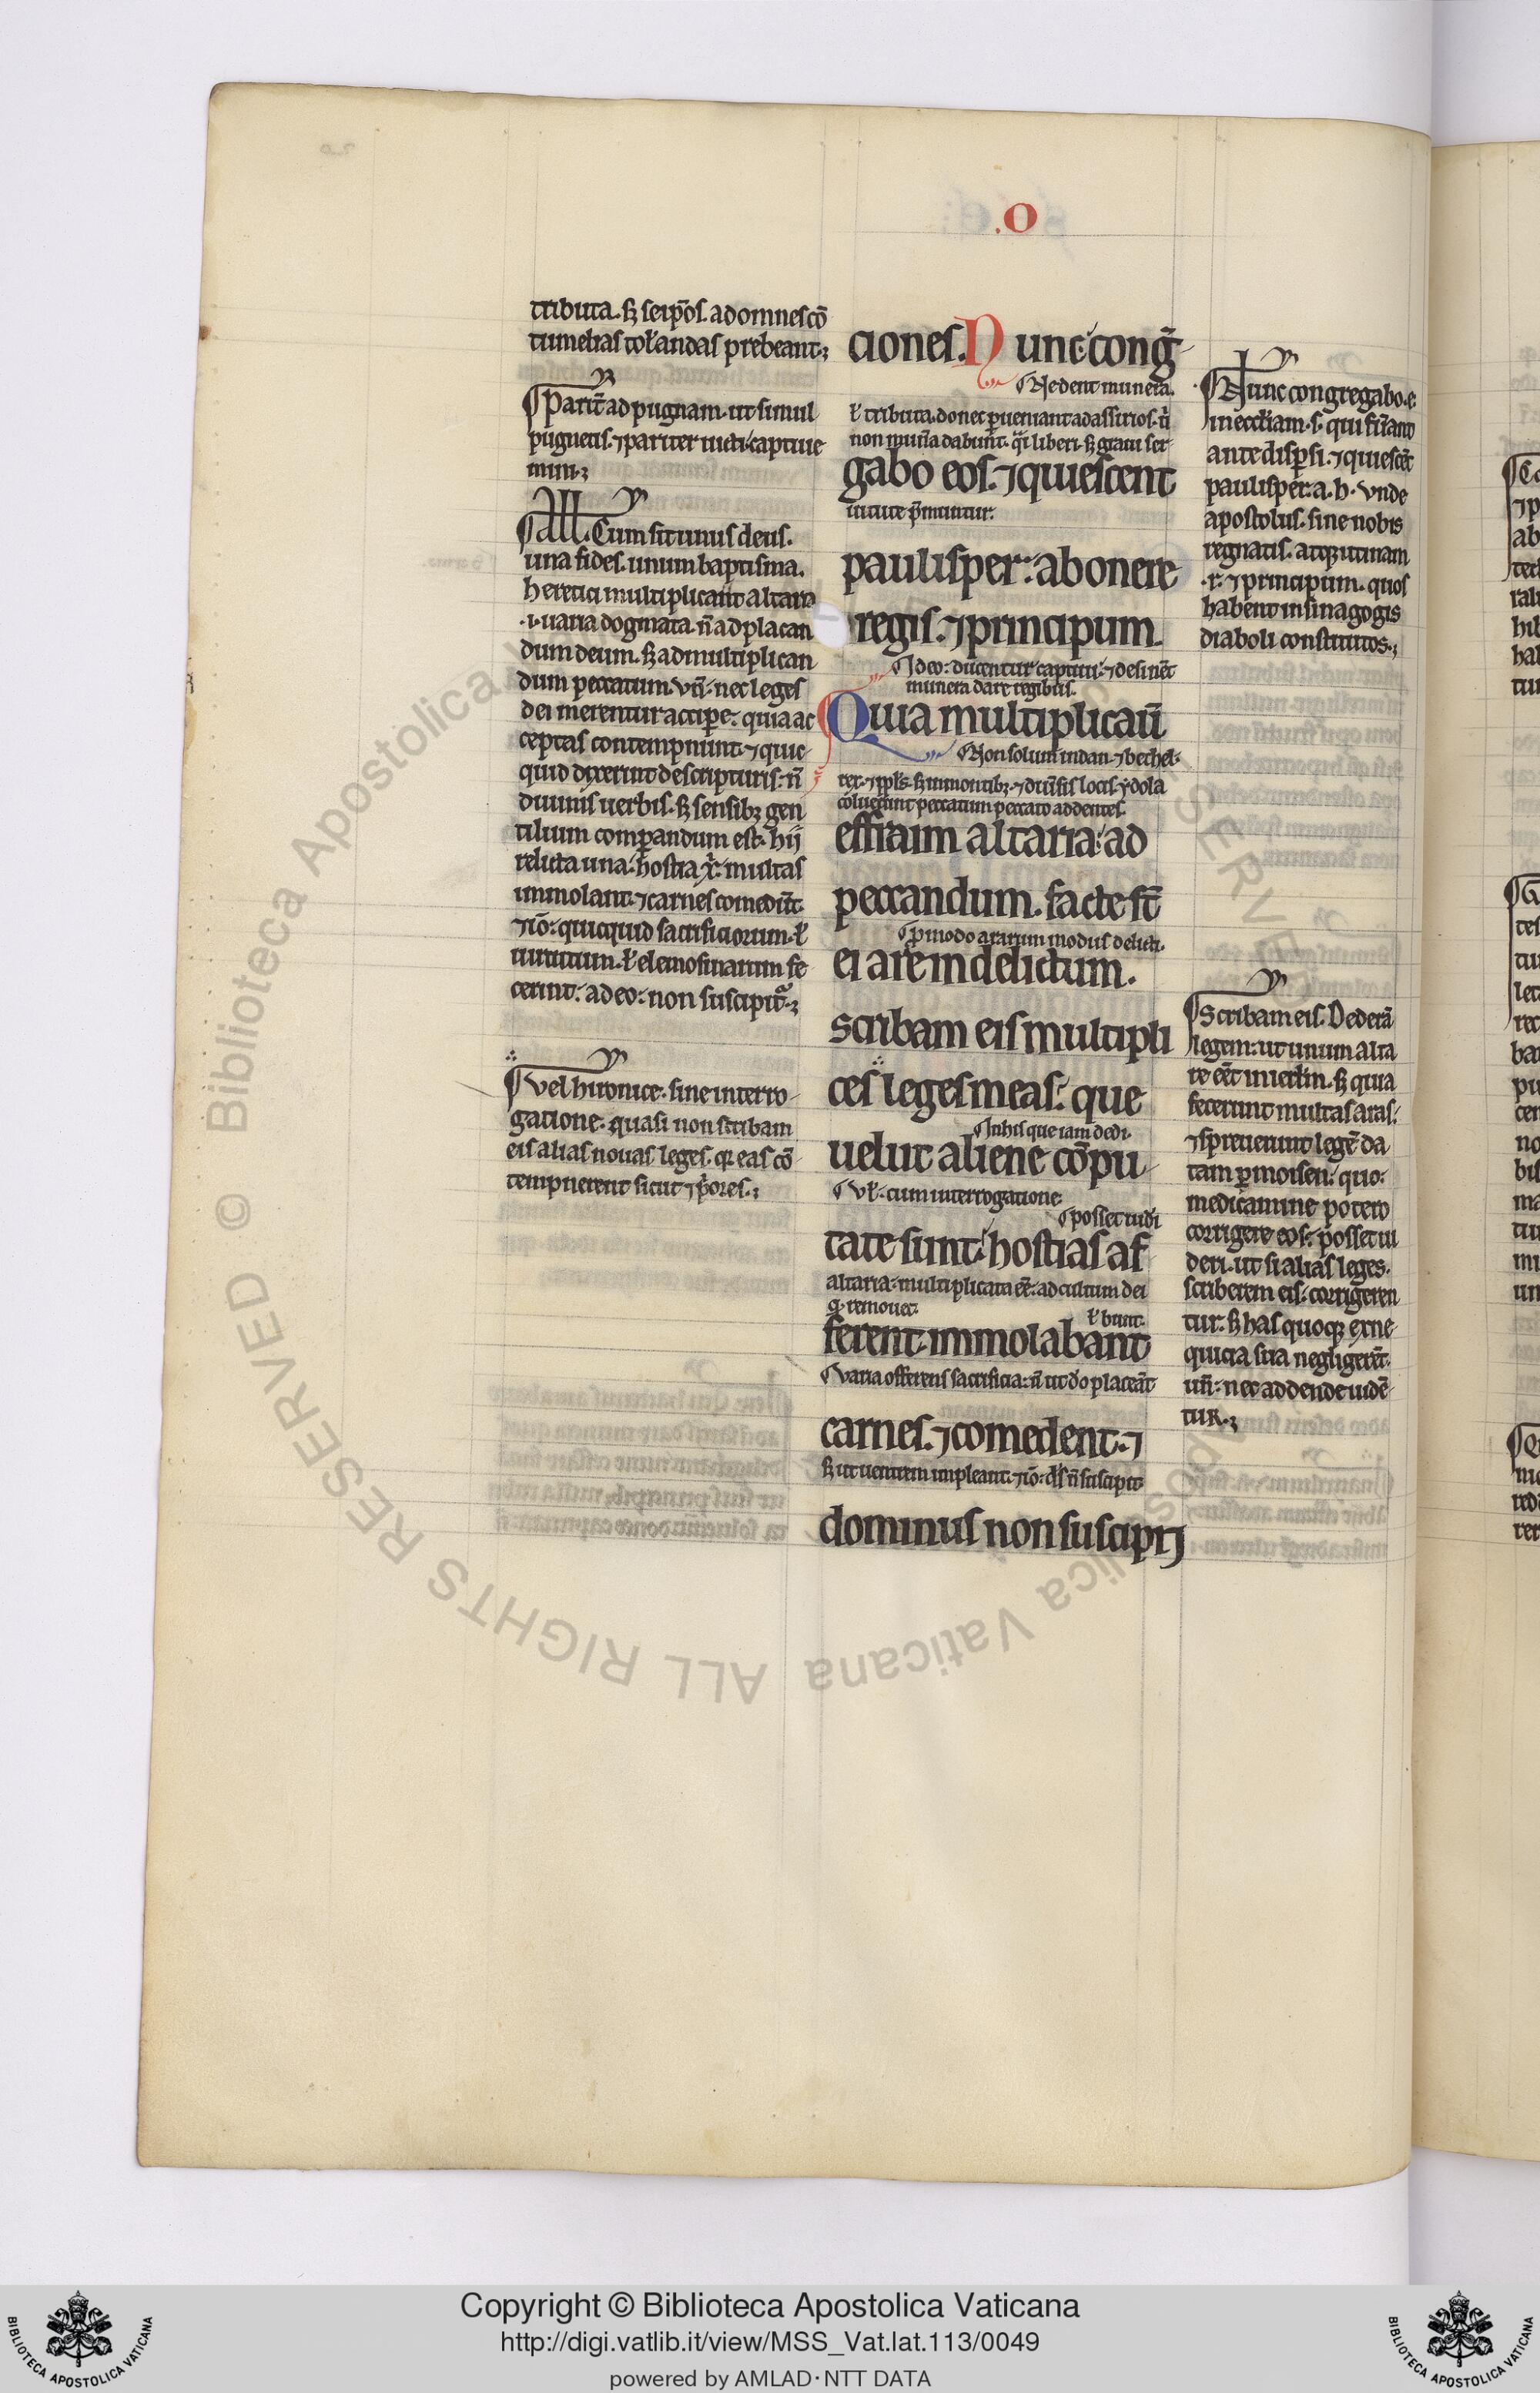 .o
tributa. sꝫ seip̄os. ad omnes cō
tumelias tol'andas prebeant.;
Parit̄ ad pugnam. ut simul
pugnetis. ⁊ pariter uicti captiue
mini.;
All. Cum sit unus deus.
una fides. unum baptisma.
heretici multiplicant altaria
.i. uaria dogmata. n̄ ad placan
dum deum. sꝫ ad multiplican
dum peccatum. Vn̄: nec leges
dei merentur accipe: quia ac
ceptas contempnunt. ⁊ quic
quid dixerint de scripturis: n̄
diuinis uerbis. sꝫ sensibꝫ gen
tilium comparandum est. hii
relicta una hostia x̄: multas
immolant. ⁊ carnes comedūt.
⁊ iō: quicquid sacrificiorum. ł
uirtutum. ł elemosinarum fe
cerint: a deo: non suscipit̄.;
Vel hironice. sine interro
gatione. quasi non scribam
eis alias nouas leges. qꝛ eas cō
tempnerent sicut ⁊ p̄ores.;
ciones. Nunc cong̃
Ne dent munera.
ł tributa. donec perueniant ad assirios. ubi
non mun̄a dabunt. q̄i liberi. sꝫ graui ser
gabo eos. ⁊ quiescent
uitute p̄mentur.
paulisper: ab onere
regis. ⁊ principum.
Ideo: ducentur captiui: ⁊ desinēt
munera dare regibus.
Quia multiplicaū
Non solum in dan. ⁊ bethel.
rex. ⁊ ppl's. sꝫ in montibꝫ. ⁊ diūsis locis. ydola
coluerunt peccatum peccato addentes.
effraim altaria: ad
peccandum. facte st̄
Pro modo ararum modus delicti.
ei are in delictum.
Scribam eis multipli
ces leges meas: que
In his que iam dedi.
uelut aliene cōpu
Vł: cum interrogatione.
posset uidi
tate sunt. hostias af
altaria: multiplicata eē: ad cultum dei
qđ remouet.
ł bunt.
ferent. immolabant
Varia offerens sacrificia: n̄ ut dō placeāt
carnes. ⁊ comedent. ⁊
sꝫ ut uentrem impleant. ⁊ iō: ds̄ n̄ suscipit
dominus non suscipiꝫ
Nunc congregabo. e.
in ecc̄iam. s. qui fuerant
ante dispersi. ⁊ quiescēt
paulisper. a. h. Vnde
apostolus. sine nobis
regnatis. atqꝫ utinam
.r. ⁊ principum. quos
habent in sinagogis
diaboli constitutos.;
Scribam eis. Dederā
legem: ut unum alta
re eēt in ierl̄m. sꝫ quia
fecerunt multas aras.
⁊ spreuerunt legē da
tam p moisen: quo
medicamine potero
corrigere eos: posset ui
deri. ut si alias leges
scriberem eis: corrigeren
tur. sꝫ has quoqꝫ ex ne
quicia sua negligerēt.
un̄: nec addende uidē
tur.;
Copyright © Biblioteca Apostolica Vaticana
http://digi.vatlib.it/view/MSS_Vat.lat.113/0049
powered by AMLAD · NTT DATA